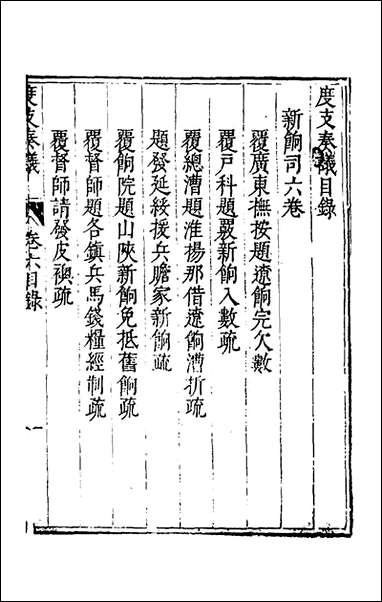 度支奏議目錄
新餉司六卷
覆廣東撫按題遼餉完欠數
覆戶科題覈新餉入數疏
覆總漕題淮楊那借遼餉漕折疏
題發延綏援兵贍家新餉疏
覆餉院題山陝新餉免抵舊餉疏
覆督師題各鎮兵馬錢糧經制疏
覆督師請發皮襖疏
度支奏議
卷六目錄
一